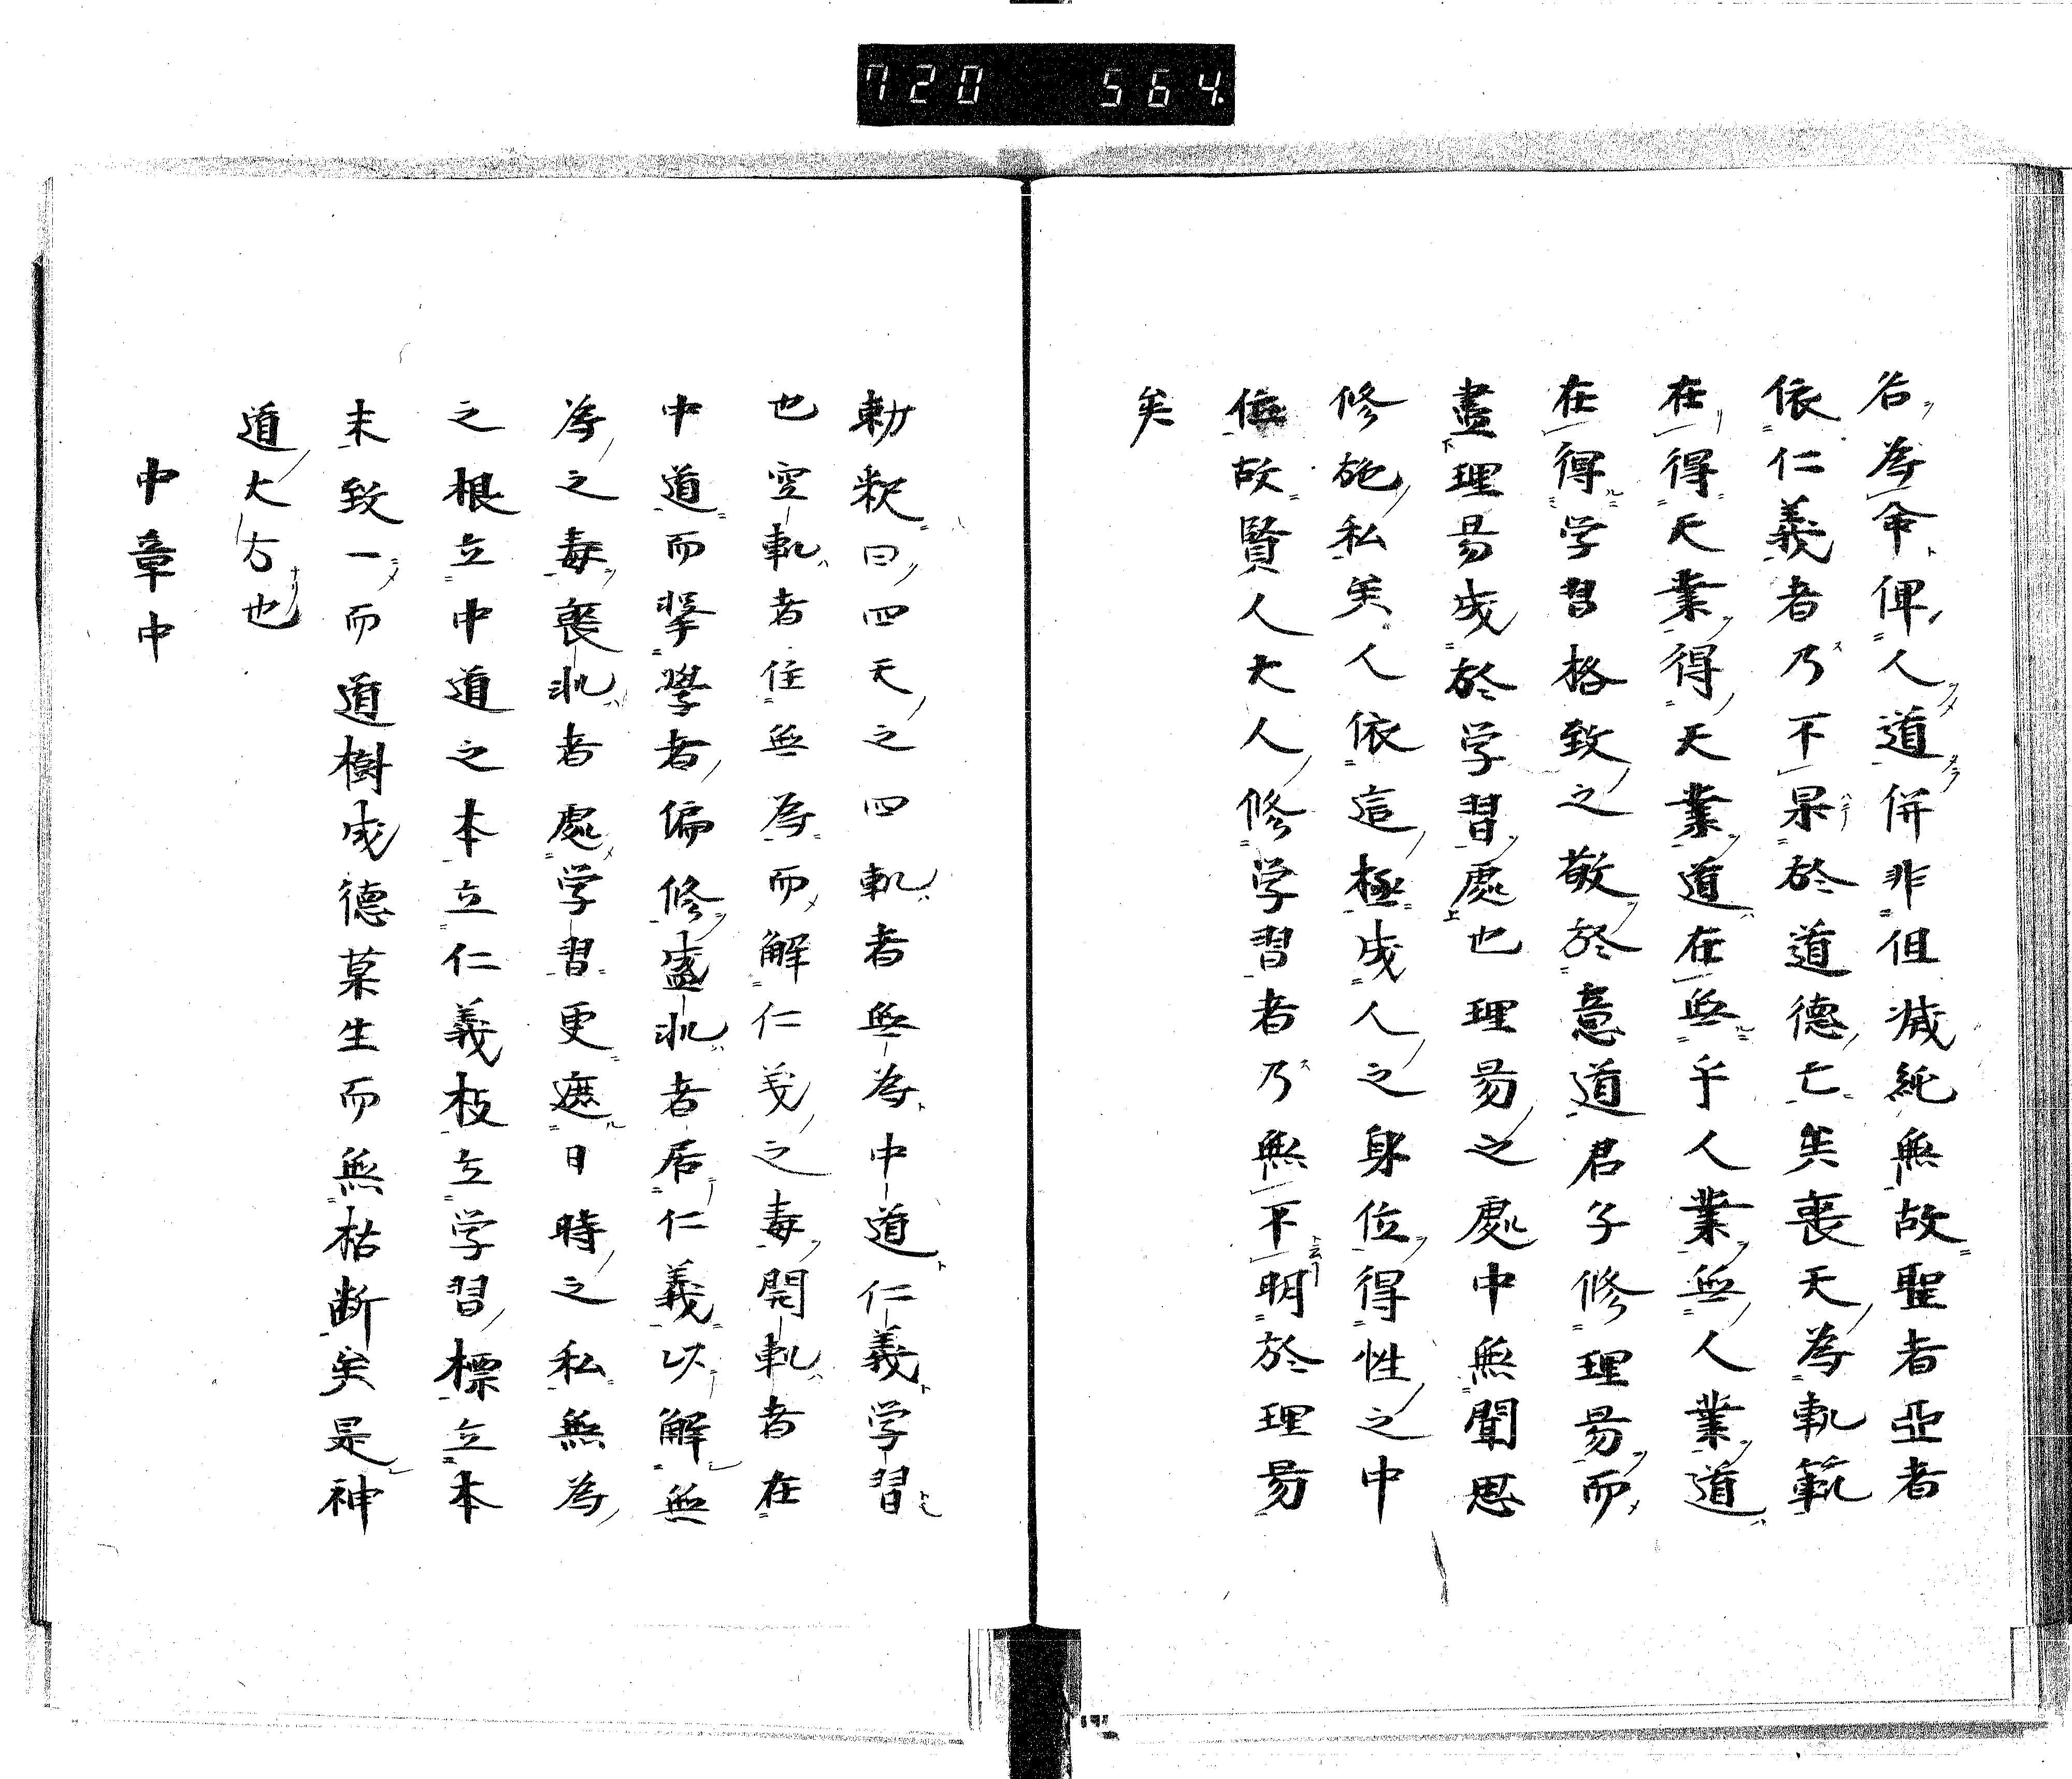 720 564.
谷為命俾人道併非但減純無故聖者亞者
依仁義者乃不果於道德亡矣喪天為軌範
在得天業得天業道在無乎人業無人業道
在得学習格致之敬於意道君子修理易而
盡理易成於学習處也理易之處中無聞思
修施私矣人依這極成人之身位得性之中
位故賢人大人修学習者乃無不明於理易
矣
勅釈曰四天之四軌者無為中道仁義学習
也空軌者住無為而解仁義之毒開軌者在
中道而挙學者偏修盛軌者居仁義以解無
為之毒喪軌者處学習更遮日時之私無為
之根立中道之本立仁義枝立学習標立本
末致一而道樹成德菓生而無枯断矣是神
道大方也
中章中